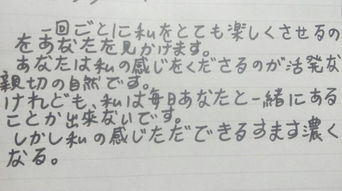 一回ごとに私をとても楽しくさせるの
をあなたを見かけます。
あなたは私の感じをくださるのが活発な
親切の自然です。
けれども、私は毎日あなたと一緒にある
ことか出来ないです。
しかし私の感じただできるすます濃く
なる。